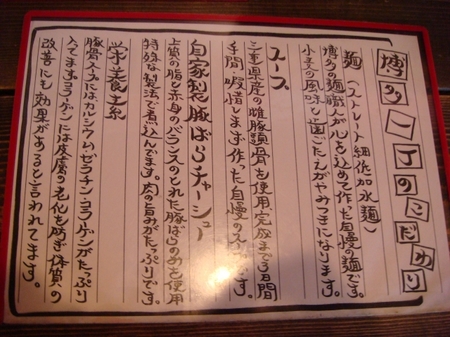 博多一丁のこだわり
麺（ストレート細作加水麺）
博多の麺職人が心を込めて作った自慢の麺です。
小麦の風味と歯ごたえがやみつきになります。
スープ
三重県産の雌豚頭骨を使用、完成まで3日間
手間暇惜します作った自慢のスープ
自家製豚ばらチャーシュー
上質の脂と赤身のバランスのとれた豚ばらのみを使用
特殊な製法で煮込んでます。肉の旨みがたっぷりです。
栄養素
豚骨スープにはカルシウム・ゼラチン・コラーゲンがたっぷり
入ってます。コラーゲンには皮膚の老化を防ぎ体質の
改善にも効果があると言われてます。